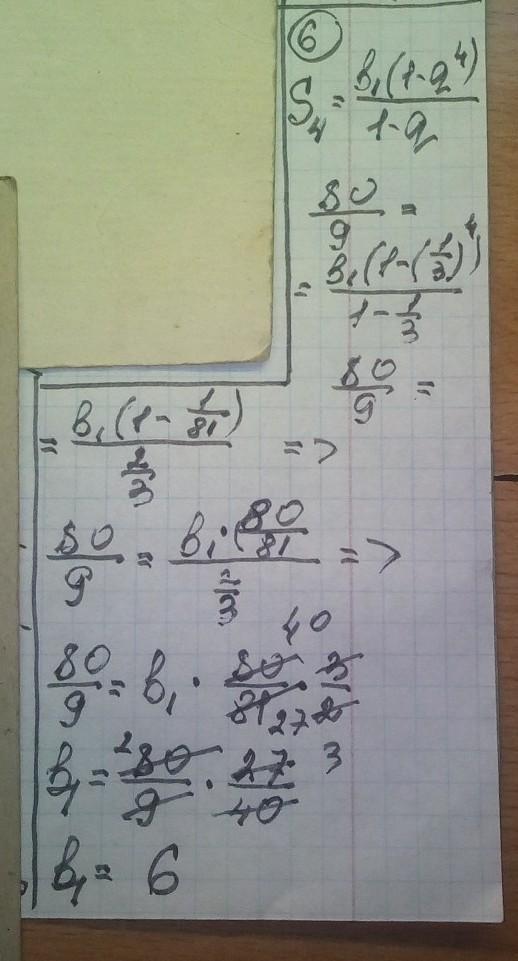 6
S₄ = b₁(1-q⁴) / 1-q
80/9 =
= b₁(1-(1/3)⁴) / 1-1/3
80/9 =
= b₁(1-1/81) / 2/3 =>
80/9 = b₁·(80/81 / 2/3 =>
40
80/9 = b₁ · 80/81 · 3/2
27
b₁ = 80/9 · 27/40
2 3
b₁ = 6